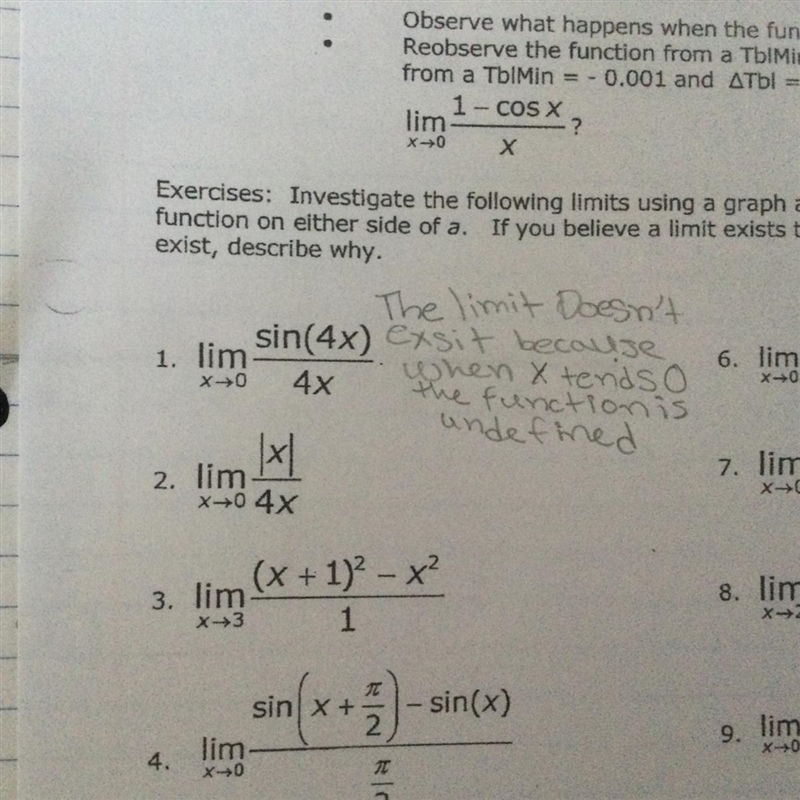 Observe what happens when the fun
Reobserve the function from a TblMin
from a TblMin = - 0.001 and ΔTbl =
lim x→0 (1 – cos x)/x ?
Exercises: Investigate the following limits using a graph a
function on either side of a. If you believe a limit exists t
exist, describe why.
1. lim x→0 sin(4x)/4x .
The limit Doesn't
exsit because
when x tends 0
the function is
undefined
2. lim x→0 |x|/4x
3. lim x→3 ((x + 1)² – x²)/1
4. lim x→0 (sin(x + π/2) – sin(x))/(π/2)
6. lim x→0
7. lim x→0
8. lim x→2
9. lim x→0